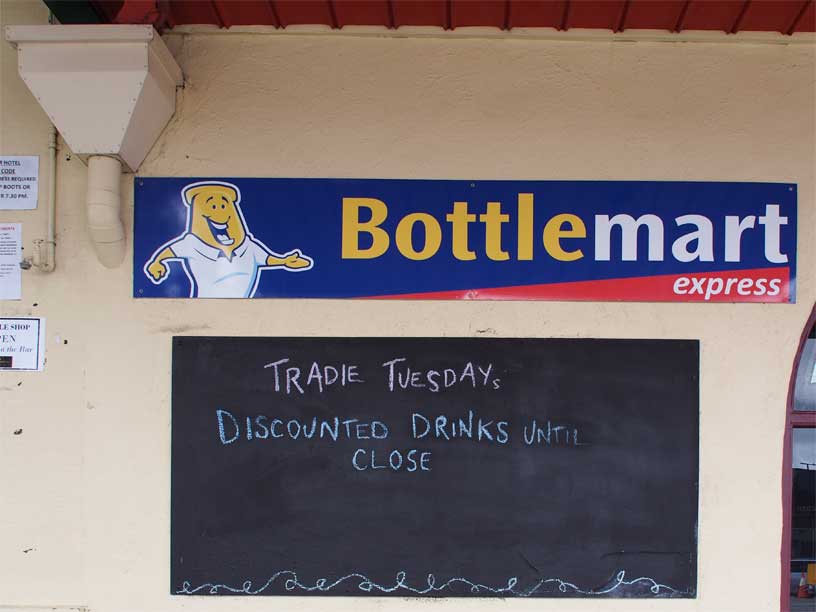 HOTEL
CODE
REQUIRED
BOOTS OR
7.30 PM.
SHOP
on the Bar
Bottlemart
express
TRADIE TUESDAYs
DISCOUNTED DRINKS UNTIL
CLOSE